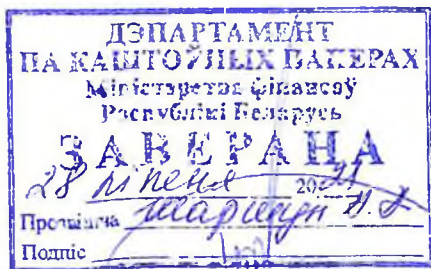 ДЭПАРТАМЕНТ
ПА КАШТОЎНЫХ ПАПЕРАХ
Міністэрства фінансаў
Рэспублікі Беларусь
ЗАВЕРАНА
28 ліпеня 2021
Прозвішча
Подпіс